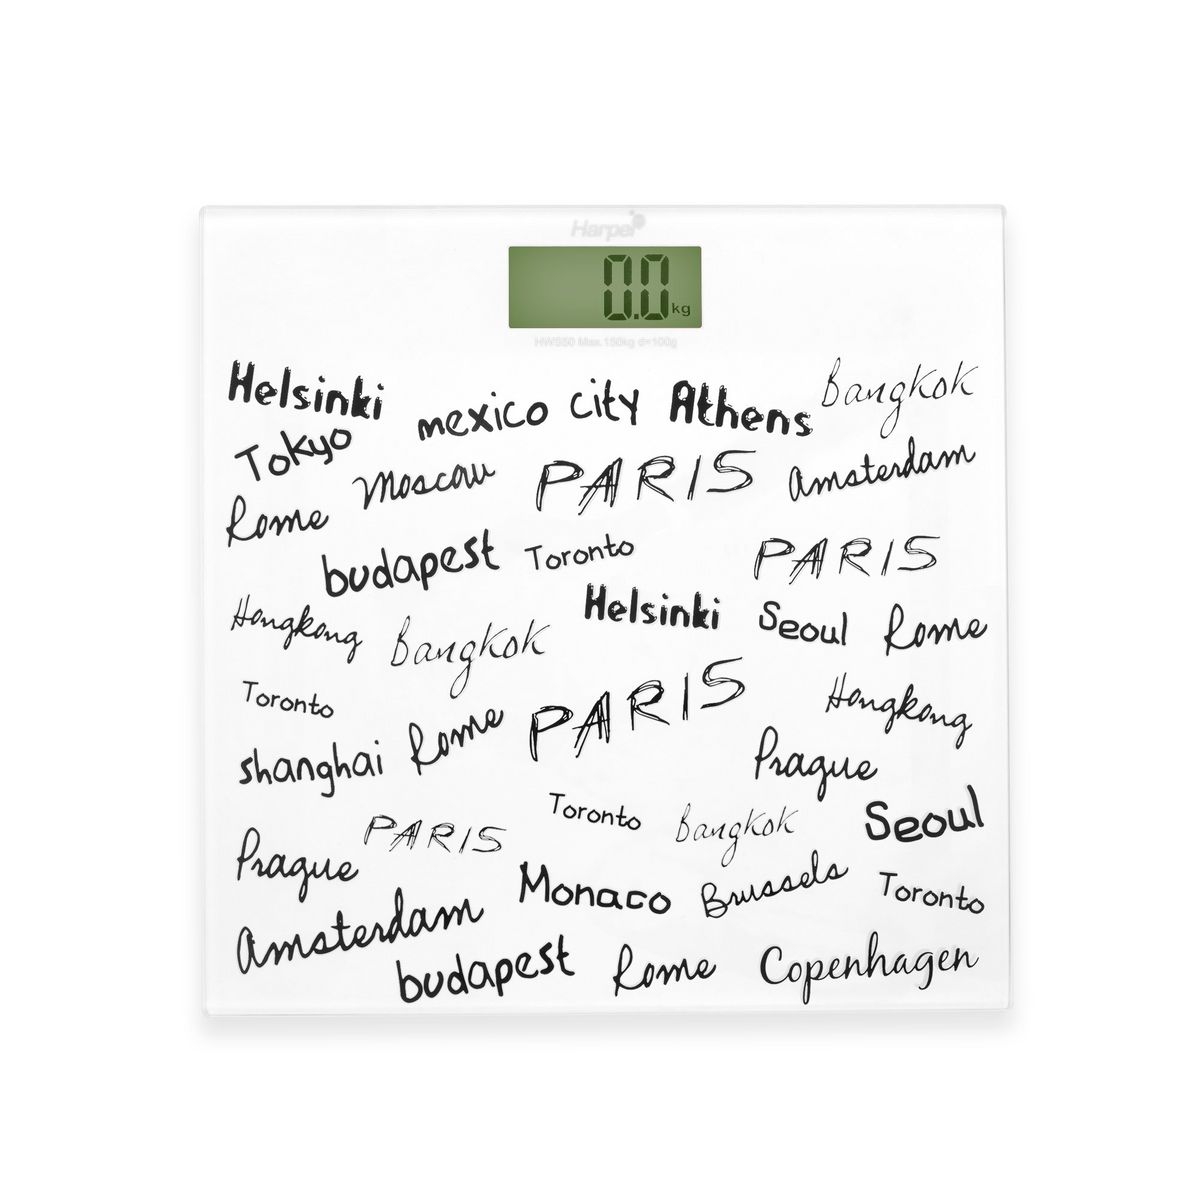 Harper
0.0 kg
HWS50 Max.150kg d=100g
Helsinki mexico city Athens Bangkok
Tokyo Moscow PARIS Amsterdam
Rome budapest Toronto PARIS
Hongkong Bangkok Helsinki Seoul Rome
Toronto Rome PARIS Hongkong
shanghai Prague
PARIS Toronto Bangkok Seoul
Prague Monaco Brussels Toronto
Amsterdam budapest Rome Copenhagen